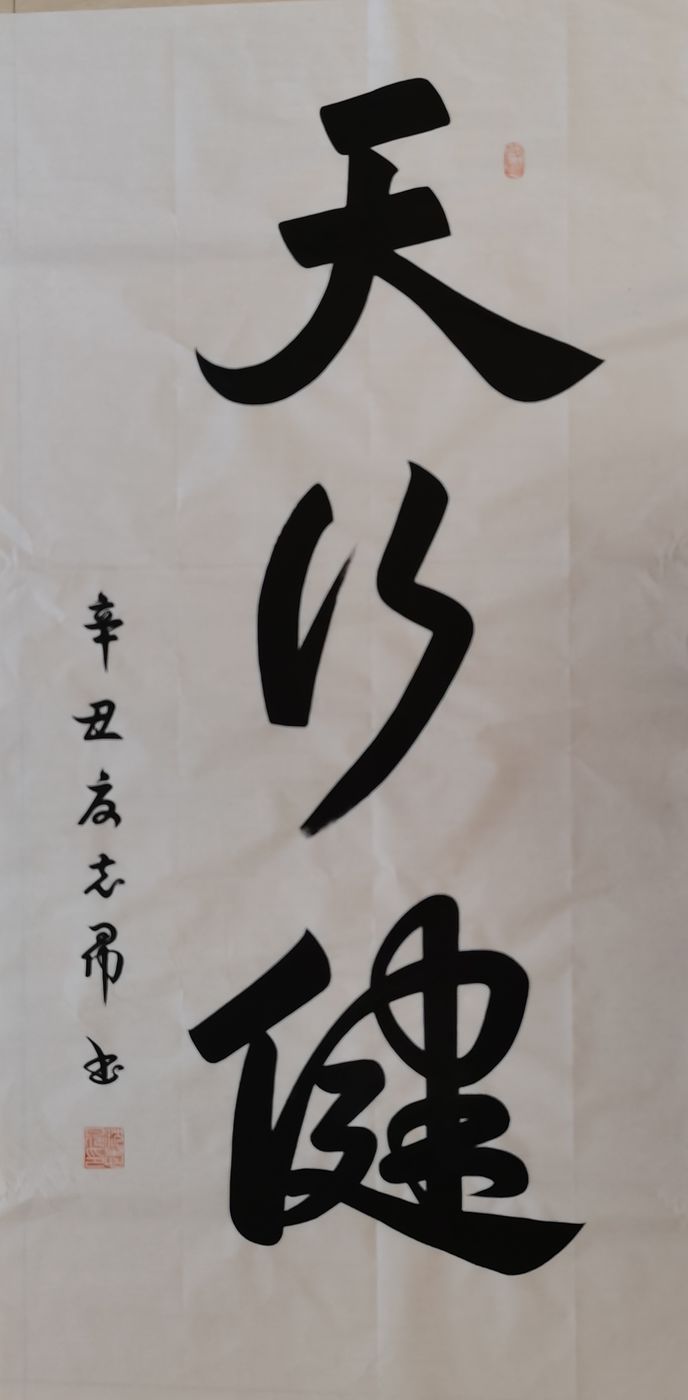 天行健
辛丑夏志帚书